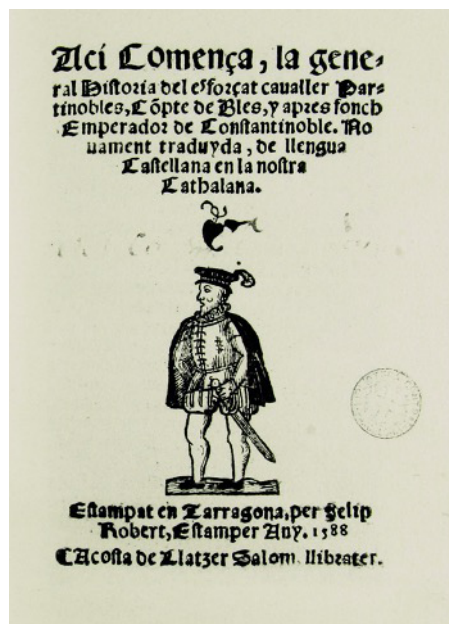 Aci Comença, la gene-
ral Historia del esforçat caualler Par-
tinobles, Cõpte de Bles, y apres fonch
Emperador de Constantinoble. No
uament traduyda, de llengua
Castellana en la nostra
Cathalana.
Estampat en Tarragona, per Felip
Robert, Estamper Any. 1588
CAcosta de Llatzer Salom llibrater.